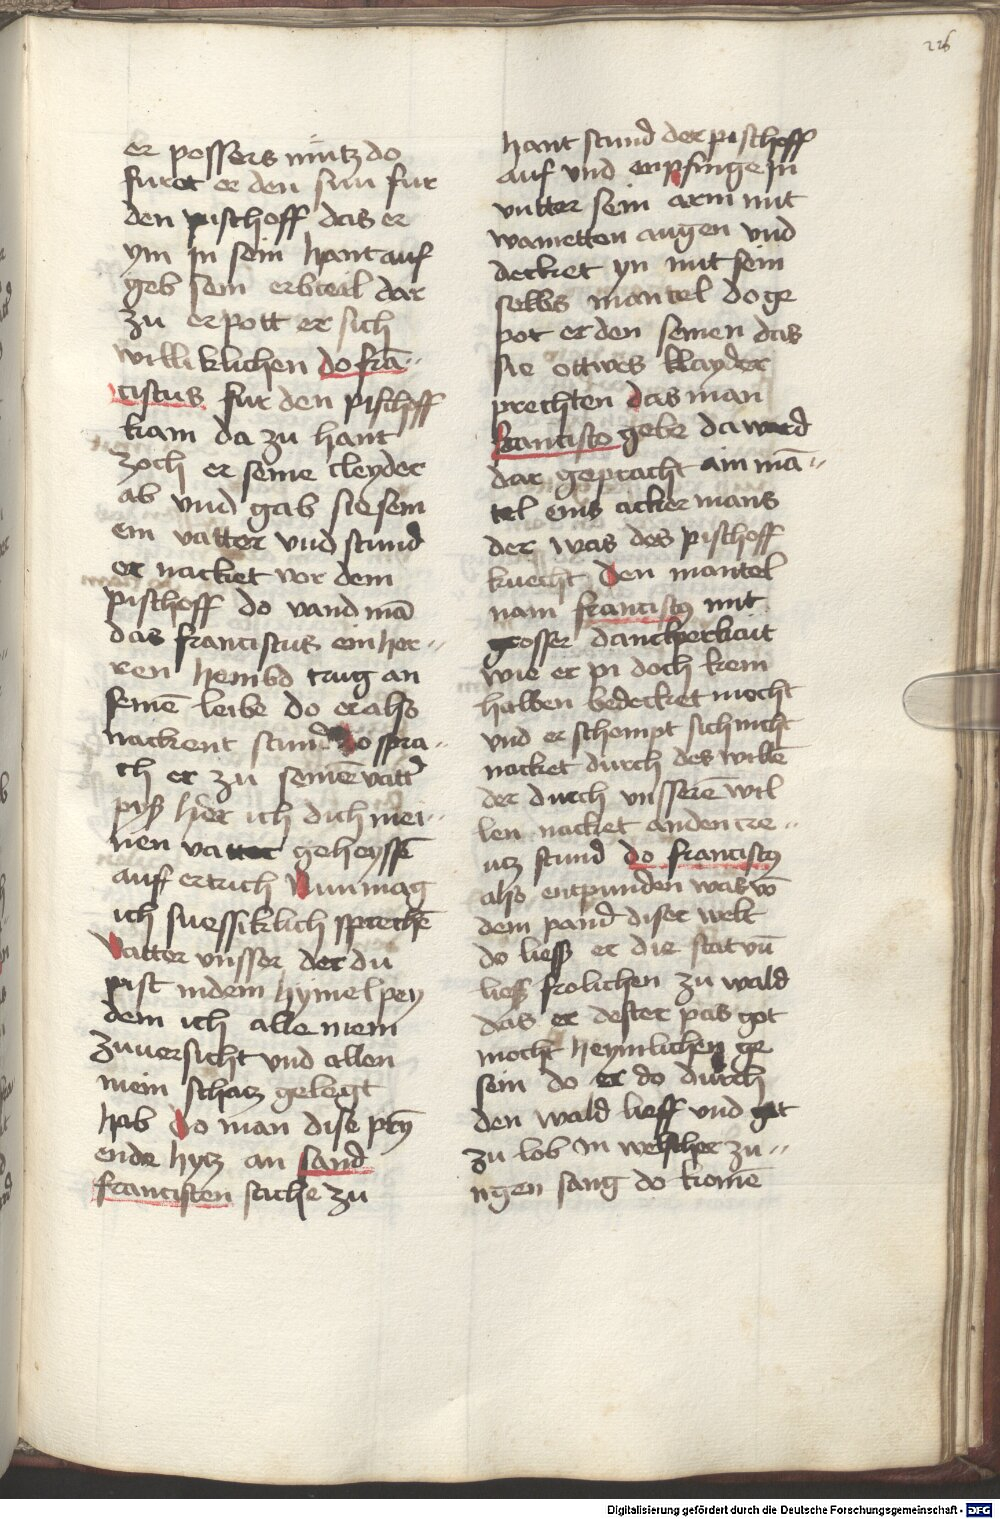 226
er possers nutz do
furet er den sun fur
den pischoff das er
ym jn sein hant auf
geb sein erbteil dar
zu erpott er sich
williklichen do frā
ciscus fur den pischoff
kam da zu hant
zoch er seine cleyder
ab vnd gab sie sein
em vatter vnd stund
er nacket vor dem
pischoff do vand mā
das franciscus ein her
ren hembd trug an
seinē leibe do er also
nackent stund do spra
ch er zu seinē vatt̓
pyß her ich dich mei
nen vatter geheyssē
auff ertrich Nun mag
ich suessiklich sprechē
Vatter vnsser der du
pist in dem hymel pey
dem ich alle mein
zuuersicht vnd allen
mein schatz gelegt
hab do man dise prȳ
ende hytz an sand
francisten sache zu
hant stund der pischoff
auf vnd enpfinge jn
vntter sein arm mit
wainetten augen vnd
decket yn mit sein
selbs mantel do ge
pot er den seinen das
sie ettwes klayder
prechten das man
francisco gebe da ward
dar gepracht ain mā
tel eins acker mans
der was des pischoff
knecht Den mantel
nam franciscus mit
grosser danckperkait
wie er pi doch kein
halben bedecket mocht
vnd er schempt sich nicht
nacket durch des willē
der durch vnsserē wil
len nacket an den cre
utz stund do franciscus
also entpunden was vō
dem pand diser welt
do liess er die stat vn̄
lieff frolichen zu wald
das er dester pas got
mocht heymlichen ge
sein do er do durch
den wald lieff vnd got
zu lob in welscher zu
ngen sang do komē
Digitalisierung gefördert durch die Deutsche Forschungsgemeinschaft - DFG